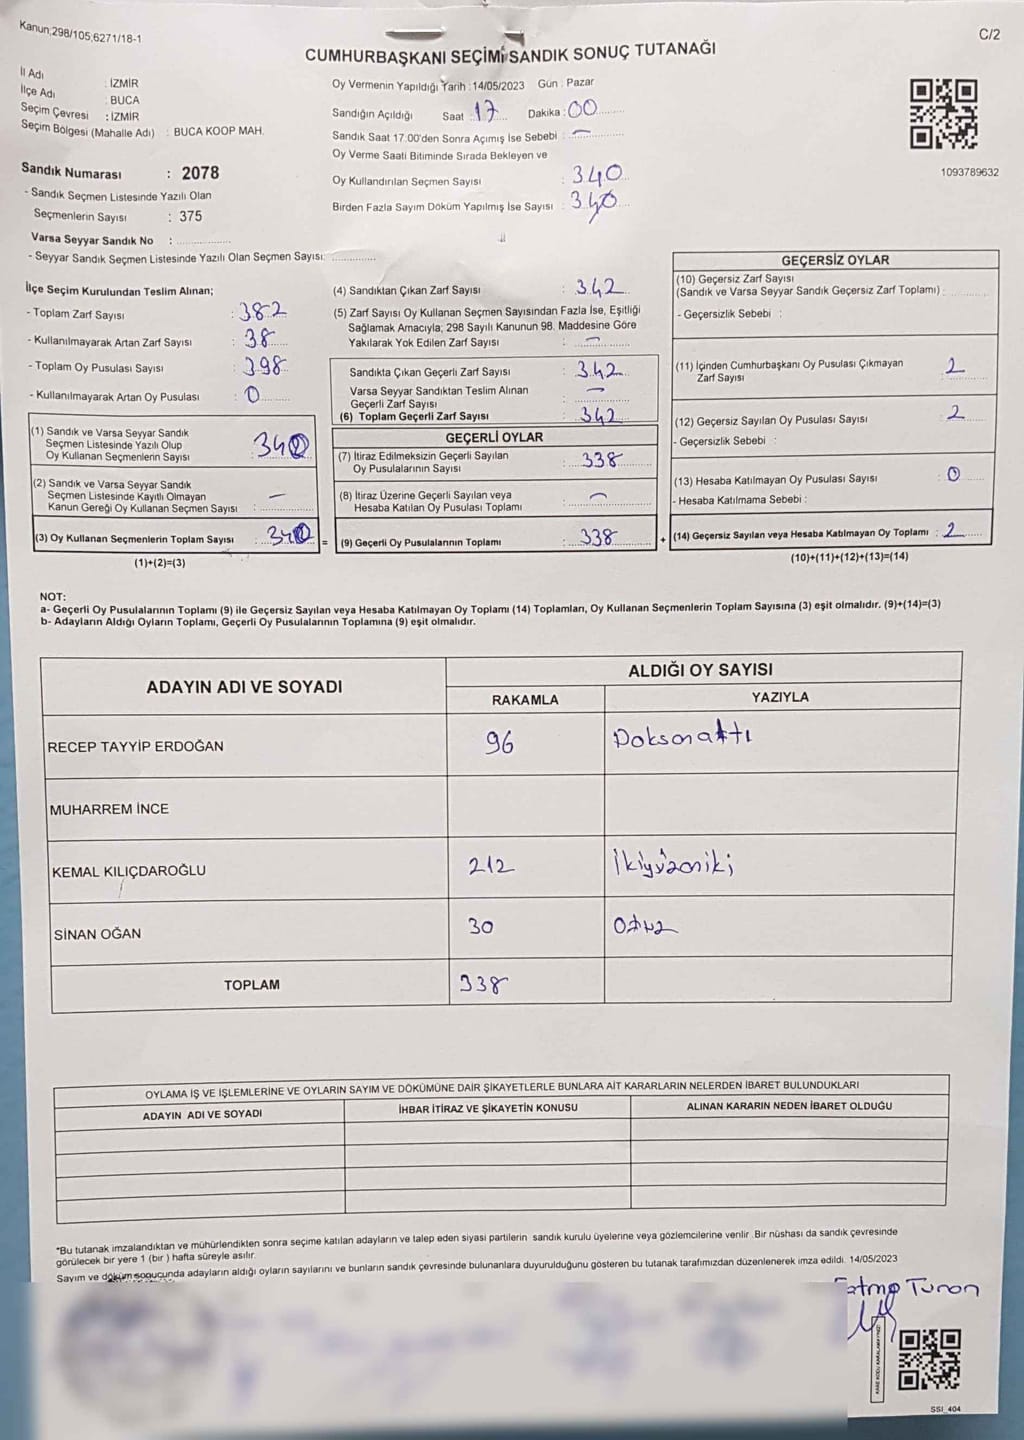 Kanun;298/105,6271/18-1
C/2
CUMHURBAŞKANI SEÇİMİ SANDIK SONUÇ TUTANAĞI
İl Adı : İZMİR
İlçe Adı : BUCA
Seçim Çevresi : İZMİR
Seçim Bölgesi (Mahalle Adı) : BUCA KOOP MAH.
Oy Vermenin Yapıldığı Tarih :14/05/2023 Gün : Pazar
Sandığın Açıldığı Saat : 17 Dakika : 00
Sandık Saat 17.00'den Sonra Açımış İse Sebebi : —
Oy Verme Saati Bitiminde Sırada Bekleyen ve
Oy Kullandırılan Seçmen Sayısı : 340
Birden Fazla Sayım Döküm Yapılmış İse Sayısı : 340
1093789632
Sandık Numarası : 2078
- Sandık Seçmen Listesinde Yazılı Olan
Seçmenlerin Sayısı : 375
Varsa Seyyar Sandık No :
- Seyyar Sandık Seçmen Listesinde Yazılı Olan Seçmen Sayısı:
İlçe Seçim Kurulundan Teslim Alınan;
- Toplam Zarf Sayısı : 382
- Kullanılmayarak Artan Zarf Sayısı : 38
- Toplam Oy Pusulası Sayısı : 398
- Kullanılmayarak Artan Oy Pusulası : 0
(1) Sandık ve Varsa Seyyar Sandık
Seçmen Listesinde Yazılı Olup
Oy Kullanan Seçmenlerin Sayısı : 340
(2) Sandık ve Varsa Seyyar Sandık
Seçmen Listesinde Kayıtlı Olmayan
Kanun Gereği Oy Kullanan Seçmen Sayısı : —
(3) Oy Kullanan Seçmenlerin Toplam Sayısı : 340 =
(1)+(2)=(3)
(4) Sandıktan Çıkan Zarf Sayısı : 342
(5) Zarf Sayısı Oy Kullanan Seçmen Sayısından Fazla İse, Eşitliği
Sağlamak Amacıyla; 298 Sayılı Kanunun 98. Maddesine Göre
Yakılarak Yok Edilen Zarf Sayısı : —
Sandıkta Çıkan Geçerli Zarf Sayısı : 342
Varsa Seyyar Sandıktan Teslim Alınan
Geçerli Zarf Sayısı : —
(6) Toplam Geçerli Zarf Sayısı : 342
GEÇERLİ OYLAR
(7) İtiraz Edilmeksizin Geçerli Sayılan
Oy Pusulalarının Sayısı : 338
(8) İtiraz Üzerine Geçerli Sayılan veya
Hesaba Katılan Oy Pusulası Toplamı : —
(9) Geçerli Oy Pusulalarının Toplamı : 338 +
GEÇERSİZ OYLAR
(10) Geçersiz Zarf Sayısı
(Sandık ve Varsa Seyyar Sandık Geçersiz Zarf Toplamı) :
- Geçersizlik Sebebi :
(11) İçinden Cumhurbaşkanı Oy Pusulası Çıkmayan
Zarf Sayısı : 2
(12) Geçersiz Sayılan Oy Pusulası Sayısı : 2
- Geçersizlik Sebebi :
(13) Hesaba Katılmayan Oy Pusulası Sayısı : 0
- Hesaba Katılmama Sebebi :
(14) Geçersiz Sayılan veya Hesaba Katılmayan Oy Toplamı : 2
(10)+(11)+(12)+(13)=(14)
NOT:
a- Geçerli Oy Pusulalarının Toplamı (9) ile Geçersiz Sayılan veya Hesaba Katılmayan Oy Toplamı (14) Toplamları, Oy Kullanan Seçmenlerin Toplam Sayısına (3) eşit olmalıdır. (9)+(14)=(3)
b- Adayların Aldığı Oyların Toplamı, Geçerli Oy Pusulalarının Toplamına (9) eşit olmalıdır.
ADAYIN ADI VE SOYADI
ALDIĞI OY SAYISI
RAKAMLA YAZIYLA
RECEP TAYYİP ERDOĞAN 96 Doksanaltı
MUHARREM İNCE
KEMAL KILIÇDAROĞLU 212 İkiyüzoniki
SİNAN OĞAN 30 Otuz
TOPLAM 338
OYLAMA İŞ VE İŞLEMLERİNE VE OYLARIN SAYIM VE DÖKÜMÜNE DAİR ŞİKAYETLERLE BUNLARA AİT KARARLARIN NELERDEN İBARET BULUNDUKLARI
ADAYIN ADI VE SOYADI İHBAR İTİRAZ VE ŞİKAYETİN KONUSU ALINAN KARARIN NEDEN İBARET OLDUĞU
*Bu tutanak imzalandıktan ve mühürlendikten sonra seçime katılan adayların ve talep eden siyasi partilerin sandık kurulu üyelerine veya gözlemcilerine verilir. Bir nüshası da sandık çevresinde
görülecek bir yere 1 (bir) hafta süreyle asılır.
Sayım ve döküm sonucunda adayların aldığı oyların sayılarını ve bunların sandık çevresinde bulunanlara duyurulduğunu gösteren bu tutanak tarafımızdan düzenlenerek imza edildi. 14/05/2023
Fatma Turan
KARE KODU KARALAMAYINIZ!
SSI_404